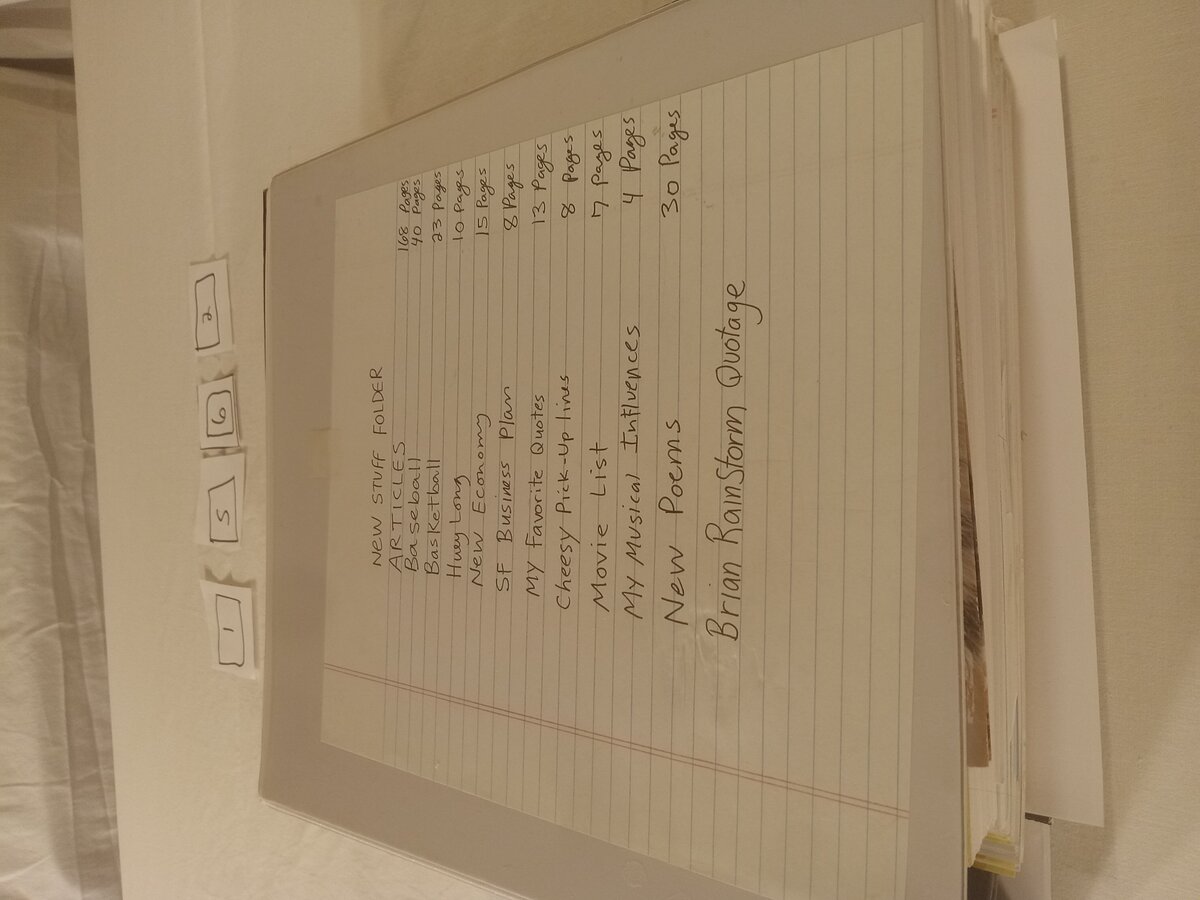 1 5 6 2
NEW STUFF FOLDER
ARTICLES 168 Pages
Baseball 40 Pages
Basketball 23 Pages
Huey Long 10 Pages
New Economy 15 Pages
SF Business Plan 8 Pages
My Favorite Quotes 13 Pages
Cheesy Pick-Up lines 8 Pages
Movie List 7 Pages
My Musical Influences 4 Pages
New Poems 30 Pages
Brian RainStorm Quotage